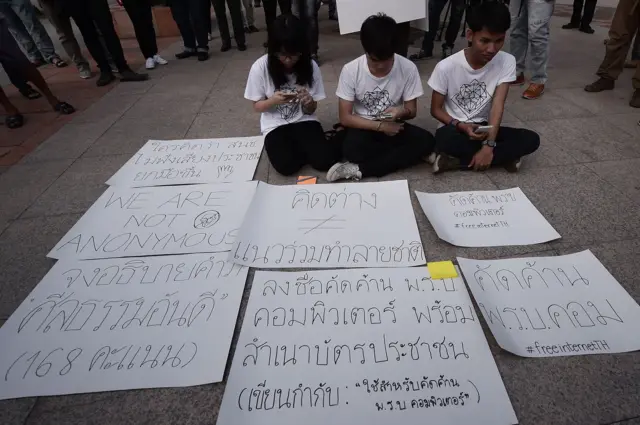 ไม่ฟังเสียงประชาชน
WE ARE
NOT
ANONYMOUS
คิดต่าง
≠
แนวร่วมทำลายชาติ
คัดค้าน พ.ร.บ
คอมพิวเตอร์
#freeinternetTH
จงอธิบายคำว่า
"ศีลธรรมอันดี"
(168 คะแนน)
ลงชื่อคัดค้าน พ.ร.บ
คอมพิวเตอร์ พร้อม
สำเนาบัตรประชาชน
(เขียนกำกับ : "ใช้สำหรับคัดค้าน
พ.ร.บ คอมพิวเตอร์")
คัดค้าน
พ.ร.บ.คอม
#freeinternetTH